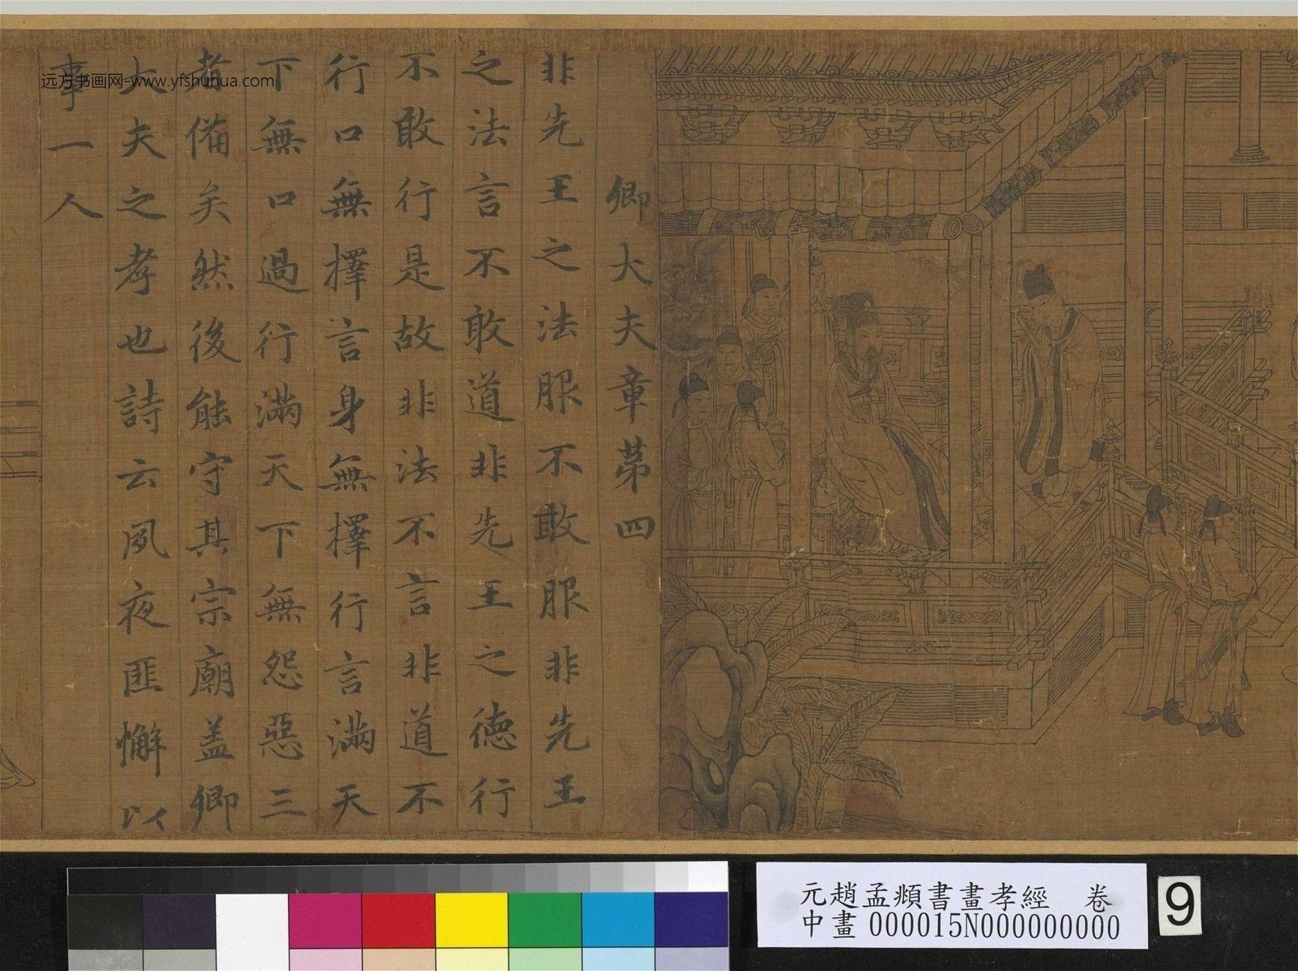 卿大夫章第四
非先王之法服不敢服非先王
之法言不敢道非先王之德行
不敢行是故非法不言非道不
行口無擇言身無擇行言滿天
下無口過行滿天下無怨惡三
者備矣然後能守其宗廟蓋卿
大夫之孝也詩云夙夜匪懈以
事一人
远方书画网-www.yfshuhua.com
元趙孟頫書畫孝經　卷
中畫000015N000000000
9